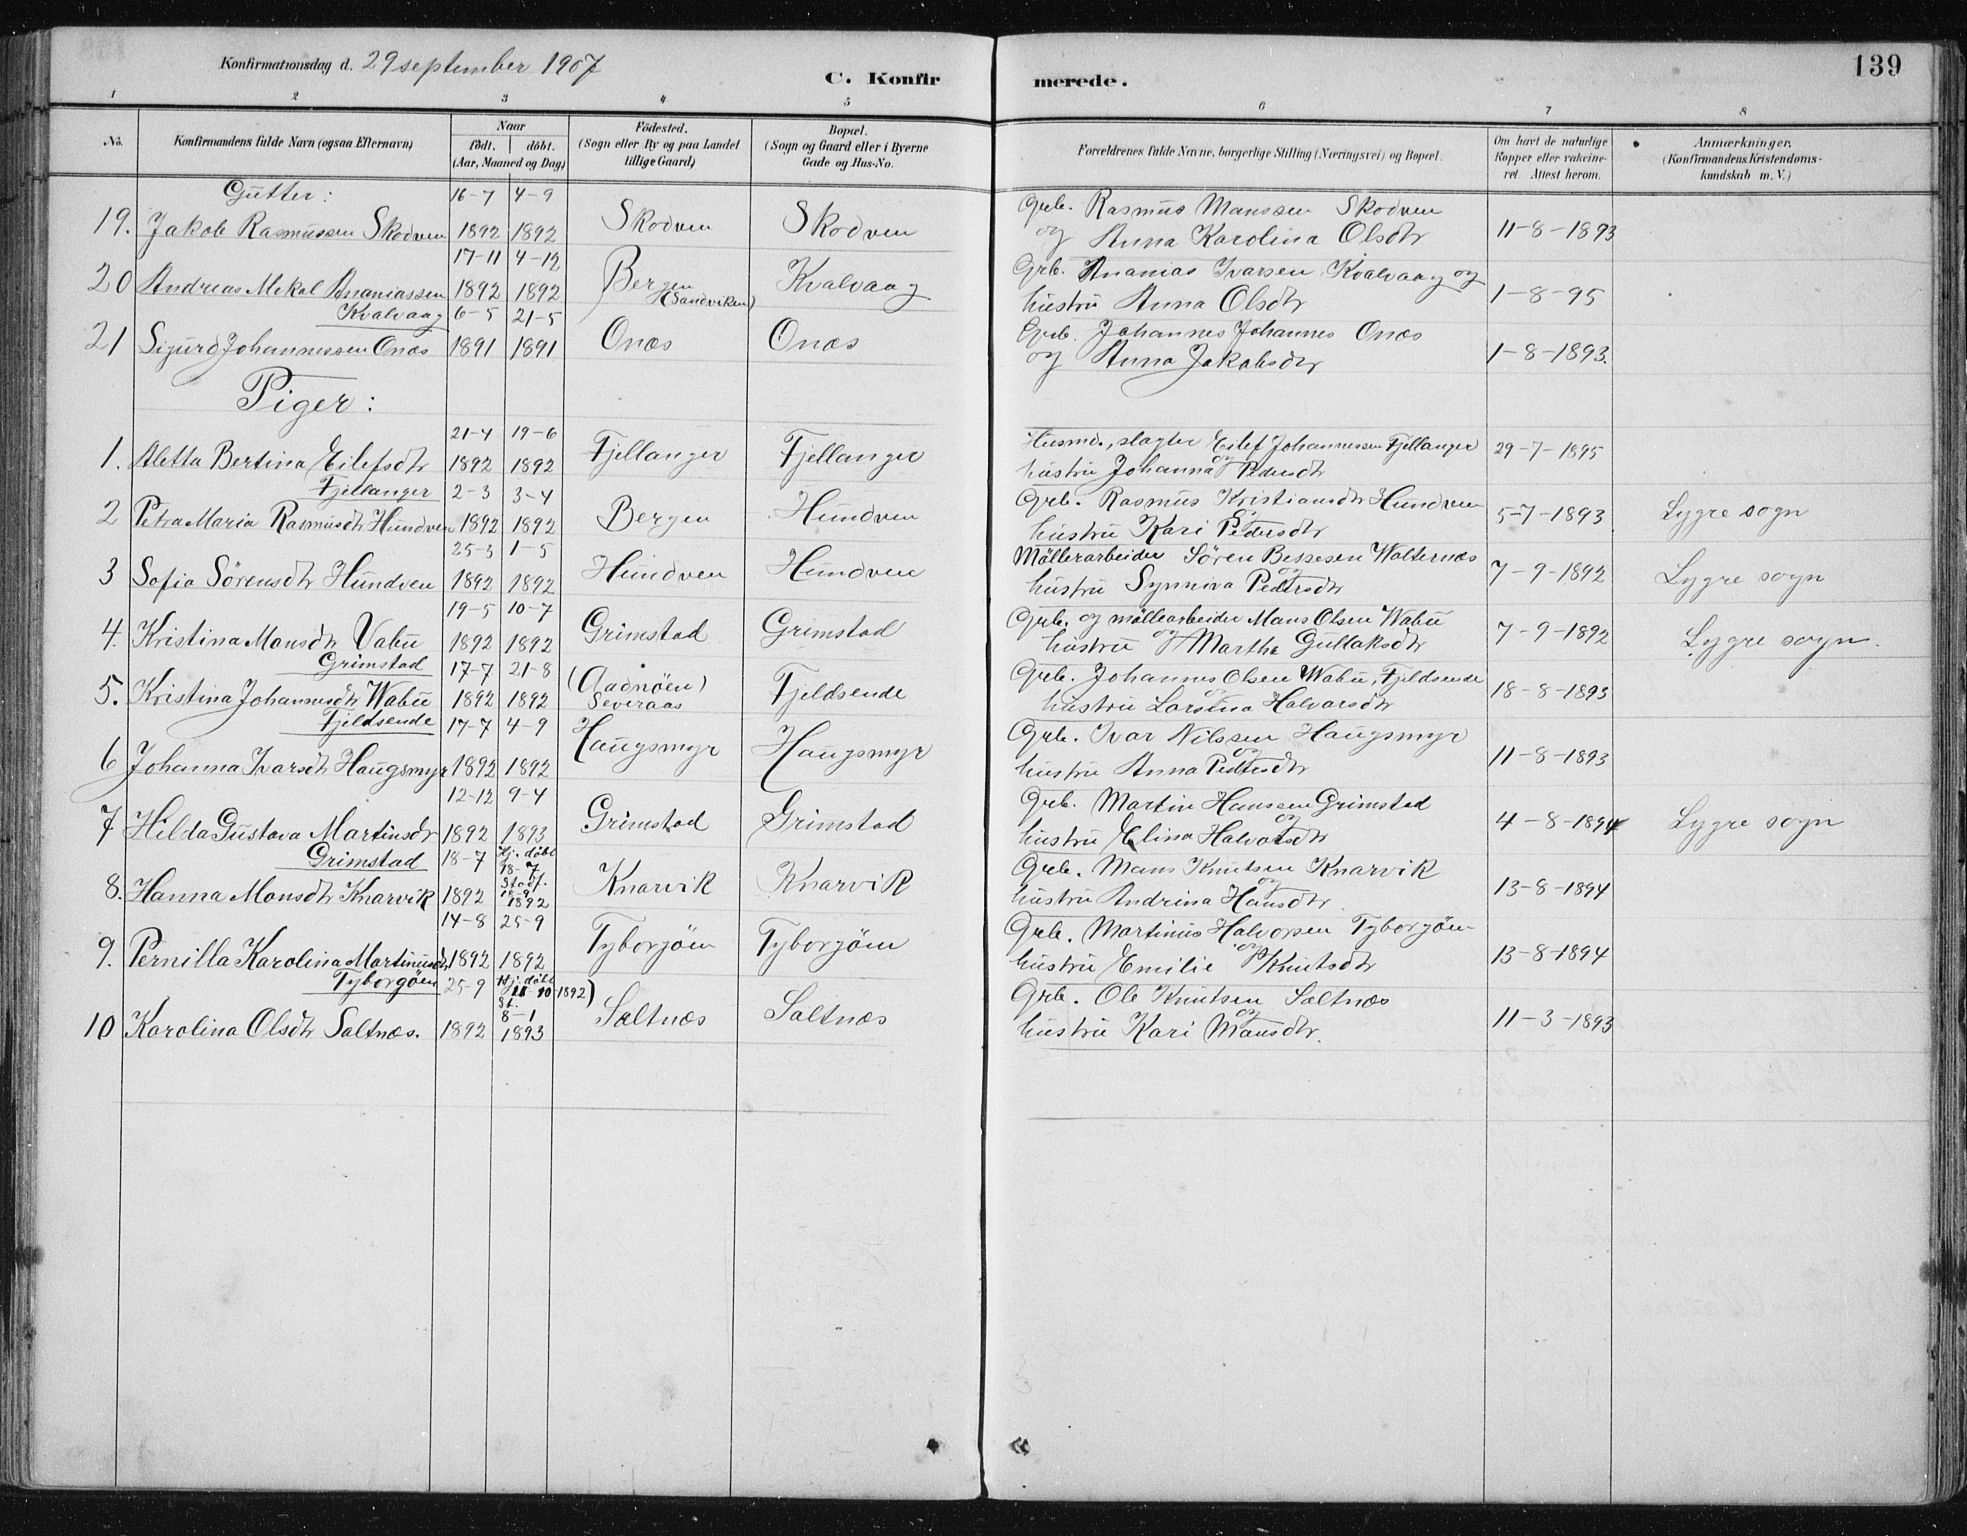 Konfirmationsdag d. 29 september 1907
C. Konfirmerede.
139
1 2 3 4 5 6 7 8
No.
Konfirmandens fulde Navn (ogsaa Efternavn)
Naar
födt. döbt.
(Aar, Maaned og Dag)
Födested.
(Sogn eller By og paa Landet
tillige Gaard)
Bopæl.
(Sogn og Gaard eller i Byerne
Gade og Hus-No.
Forældrenes fulde Navne, borgerlige Stilling (Næringsvei) og Bopæl.
Om havt de naturlige
Kopper eller vakcine-
ret. Attest herom.
Anmærkninger,
(Konfirmandens Kristendoms-
kundskab m. V.)
Gutter:
19. Jakob Rasmussen Skodven 16-7 1892 4-9 1892 Skodven Skodven
Grb. Rasmus Manssen Skodven
og Anna Karolina Olsdtr 11-8-1893
20 Andreas Mekal Ananiassen
Kvalvaag 17-11 1892 4-12 1892 Bergen
(Sandviken) Kvalvaag
Grb. Ananias Ivarsen Kvalvaag og
hustru Anna Olsdtr 1-8-95
21 Sigurd Johannessen Onæs 6-5 1891 21-5 1891 Onæs Onæs
Grb. Johannes Johannes Onæs
og Anna Jakobsdtr 1-8-1893.
Piger:
1. Aletta Bertina Eilefsdtr
Fjellanger 21-4 1892 19-6 1892 Fjellanger Fjellanger
Husmd., slagter Eilef Johannessen Fjellanger
og
hustru Johanna Pedersdtr 29-7-1895
2 Petra Maria Rasmusdtr Hundven 2-3 1892 3-4 1892 Bergen Hundven
Grb. Rasmus Kristiansdtr Hundven
og
hustru Kari Pedersdtr 5-7-1893 Lygre sogn
3 Sofia Sörensdtr Hundven 25-3 1892 1-5 1892 Hundven Hundven
Möllerarbeider Sören Bessesen Walternæs
og
hustru Synniva Pedersdtr 7-9-1892 Lygre sogn
4. Kristina Monsdtr Vabü
Grimstad 19-5 1892 10-7 1892 Grimstad Grimstad
Grb. og möllearbeider Mans Olsen Wabü
og
hustru Martha Gullaksdtr 7-9-1892 Lygre sogn.
5. Kristina Johannesdtr Wabü
Fjeldsende 17-7 1892 21-8 1892 (Aadnöen)
Severaas Fjeldsende
Grb. Johannes Olsen Wabü, Fjeldsende
og
hustru Larsina Halvorsdtr 18-8-1893
6 Johanna Ivarsdtr Haugsmyr 17-7 1892 4-9 1892 Haugsmyr Haugsmyr
Grb. Ivar Nilssen Haugsmyr
og
hustru Anna Pedersdtr 11-8-1893
7 Hilda Gustava Martinsdtr
Grimstad 12-12 1892 9-4 1893 Grimstad Grimstad
Grb. Martin Hanssen Grimstad
og
hustru Elina Halvorsdtr 4-8-1894 Lygre sogn
8. Hanna Monsdtr Knarvik 18-7 1892 Hj. döbt
18-7
Stadf.
18-9
1892 Knarvik Knarvik
Grb. Mans Knutsen Knarvik
og
hustru Andrina Hansdtr. 13-8-1894
9. Pernilla Karolina Martinusdtr
Tyborgöen 14-8 1892 25-9 1892 Tyborgöen Tyborgöen
Grb. Martinus Halvorsen Tyborgöen
og
hustru Emilie Knutsdtr 13-8-1894
10 Karolina Olsdtr Saltnæs. 25-9 1892 Hj. döbt
11-10-1892)
St.
8-1
1893 Saltnæs Saltnæs
Grb. Ole Knutsen Saltnæs
og
hustru Kari Mansdtr. 11-3-1893